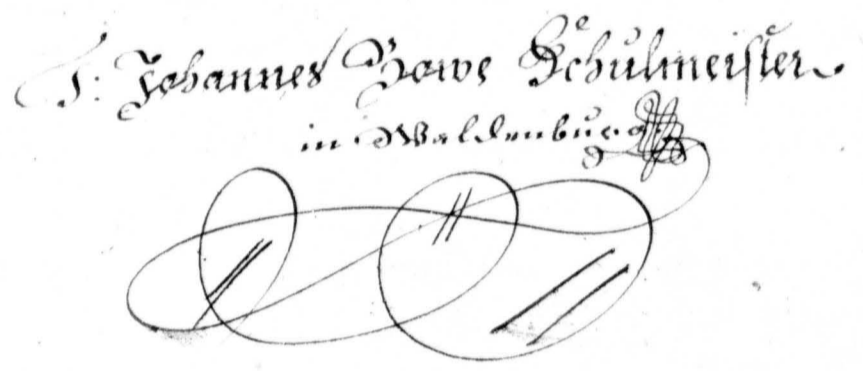 T: Johannes Bowe Schulmeister
in Waldenburg